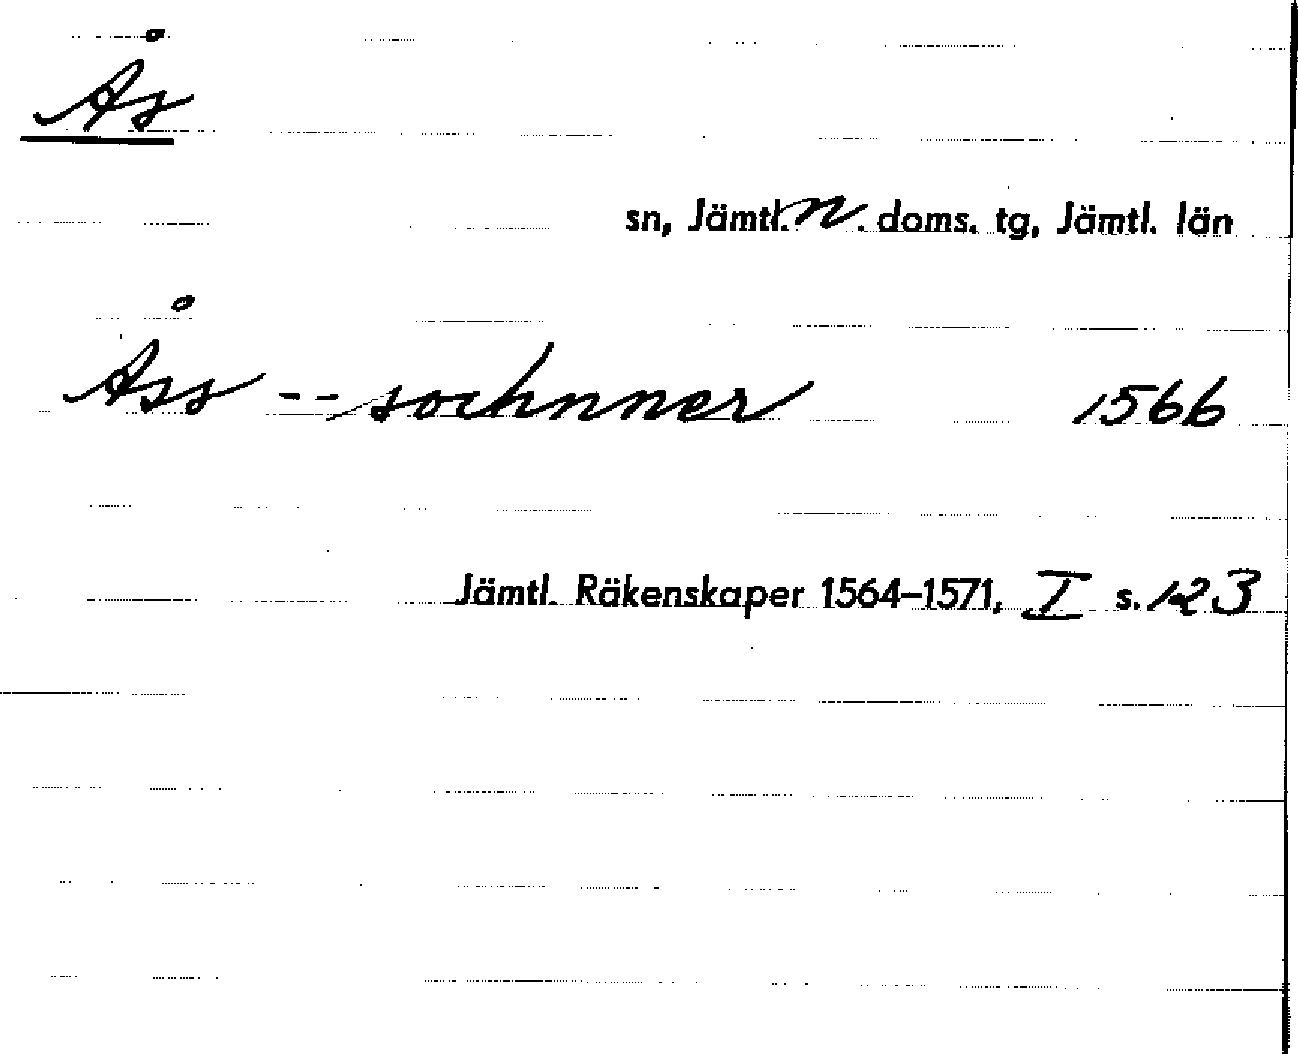 Ås
sn, Jämtl. n. doms. tg, Jämtl. län
Åss -- sochnner 1566
Jämtl. Räkenskaper 1564–1571, I s. 123